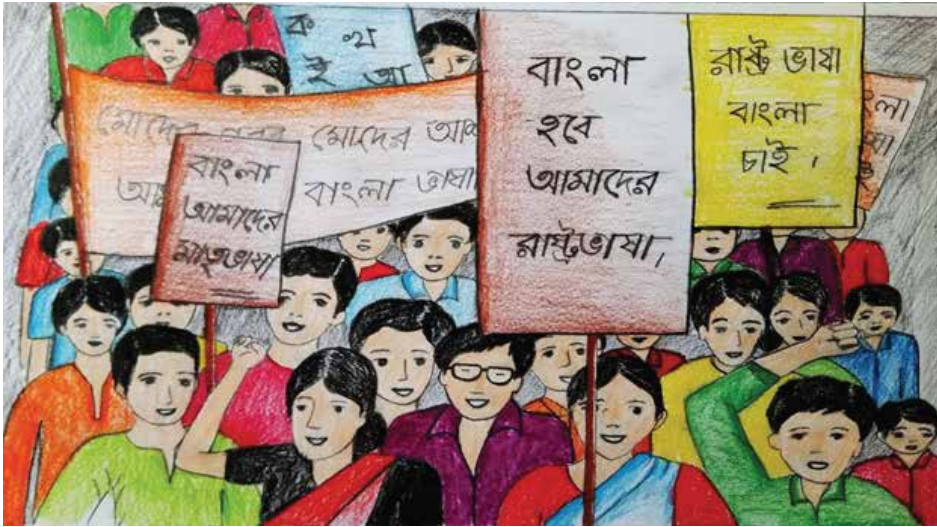 ক খ
ই আ
মোদের গরব মোদের আশা
বাংলা ভাষা
বাংলা
আমাদের
মাতৃভাষা
বাংলা
হবে
আমাদের
রাষ্ট্রভাষা।
রাষ্ট্র ভাষা
বাংলা
চাই।